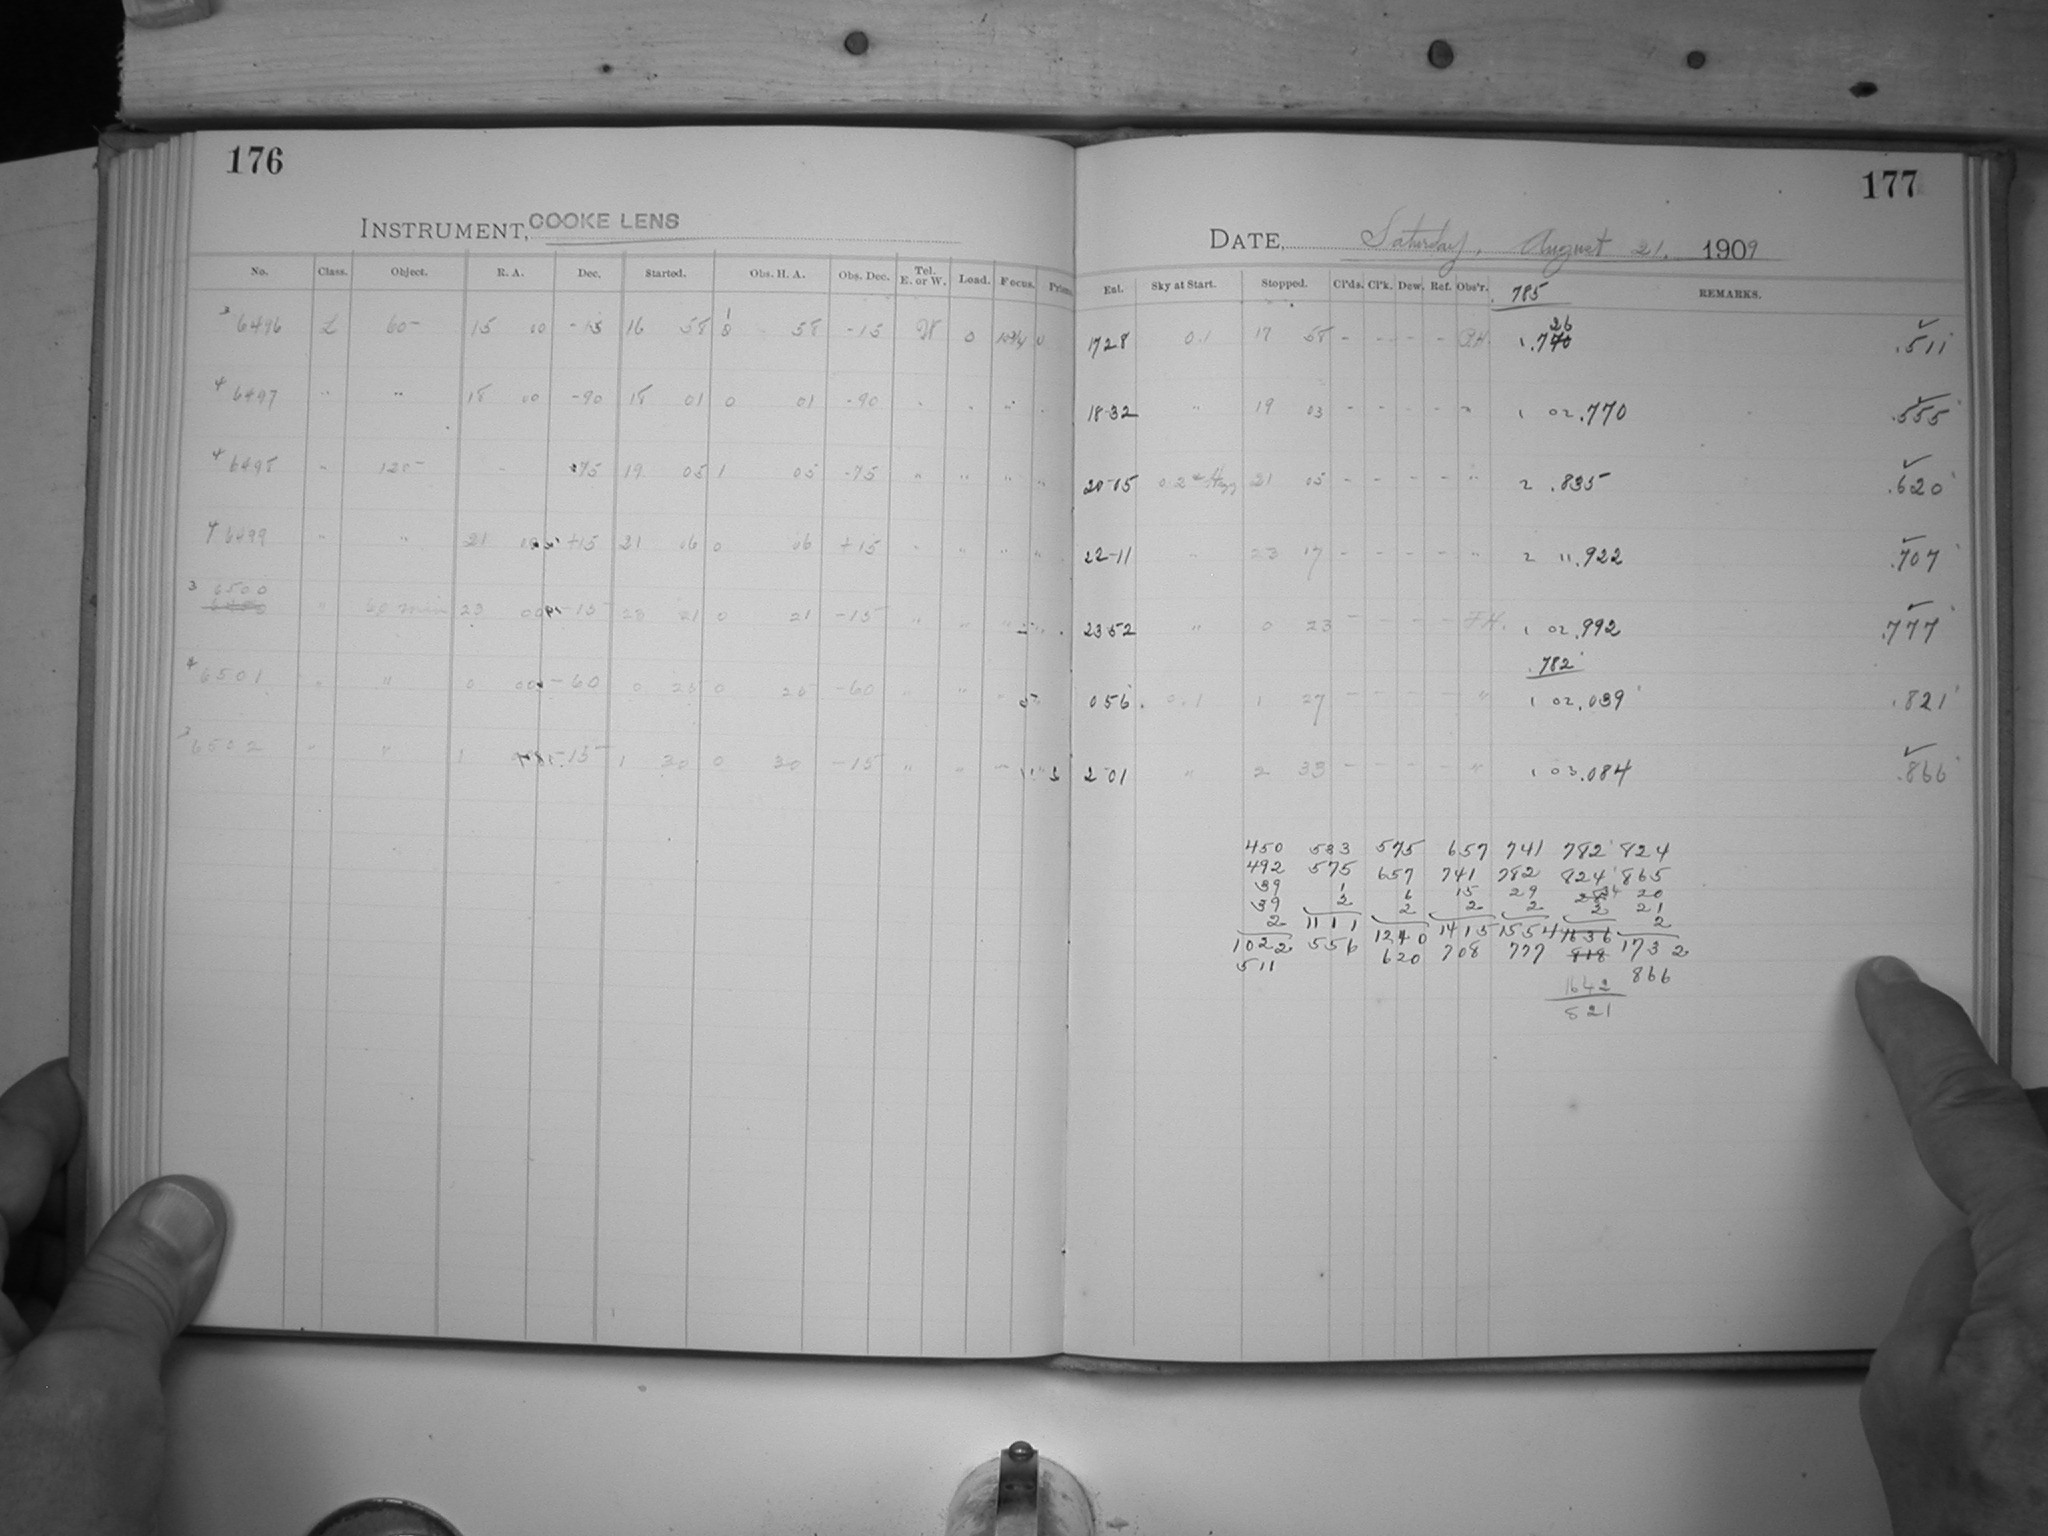 176
177
INSTRUMENT, COOKE LENS
DATE, Saturday, August 21, 1909
No. Class. Object. R. A. Dec. Started. Obs. H. A. Obs. Dec. Tel. E. or W. Load. Focus. Prism
Ext. Sky at Start. Stopped. Cl'ds. Cl'k. Dew. Ref. Obs'r. REMARKS.
.785
3 6496 L 60- 15 00 -15 16 58 58 -15 W 0 0 1728 0.1 17 58 - - - - 1 .511
26
4 6497 " " 18 00 -90 18 01 0 01 -90 18-32 " 19 03 - - - - " 1 02.770 .555
4 6498 " 120- - 75 19 05 1 05 -75 " " " " 20-05 21 05 - - - - " 2 .835 .620
4 6499 " " 21 +15 21 06 0 06 +15 " " " " 22-11 " 23 17 - - - - " 2 11.922 .707
3 6500 " 60 min 23 -15 23 21 0 21 -15 " " 23-52 " 0 23 - - - - 1 02.992 .777
.782
4 6501 " " 0 -60 0 25 0 25 -60 " " 056 0.1 1 27 - - - - " 1 02.039 .821
3 6502 " " 1 -15 1 30 0 30 -15 " " 2-01 " 2 33 - - - - " 1 03.084 .866
450 533 575 657 741 782 824
492 575 657 741 782 824 865
39 1 6 15 29 34 20
39 2 2 2 2 2 21
2 1111 1240 1415 1554 1636 2
1022 556 620 708 777 818 1732
511 866
1642
821